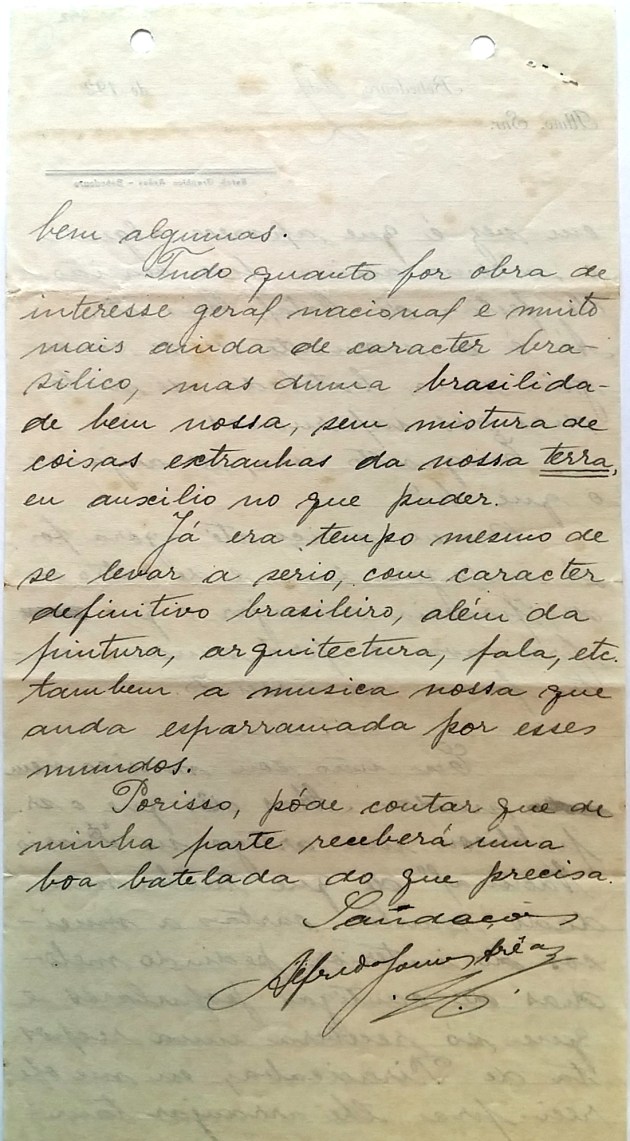 bem algumas.
Tudo quanto for obra de
interesse geral nacional e muito
mais ainda de caracter bra-
silico, mas duma brasilida-
de bem nossa, sem mistura de
coisas extranhas da nossa terra,
eu auxilio no que puder.
Já era tempo mesmo de
se levar a serio, com caracter
definitivo brasileiro, além da
pintura, arquitectura, fala, etc.
tambem a musica nossa que
anda esparramada por esses
mundos.
Porisso, póde contar que de
minha parte receberá uma
boa batelada do que precisa.
Saüdações
Alfredo